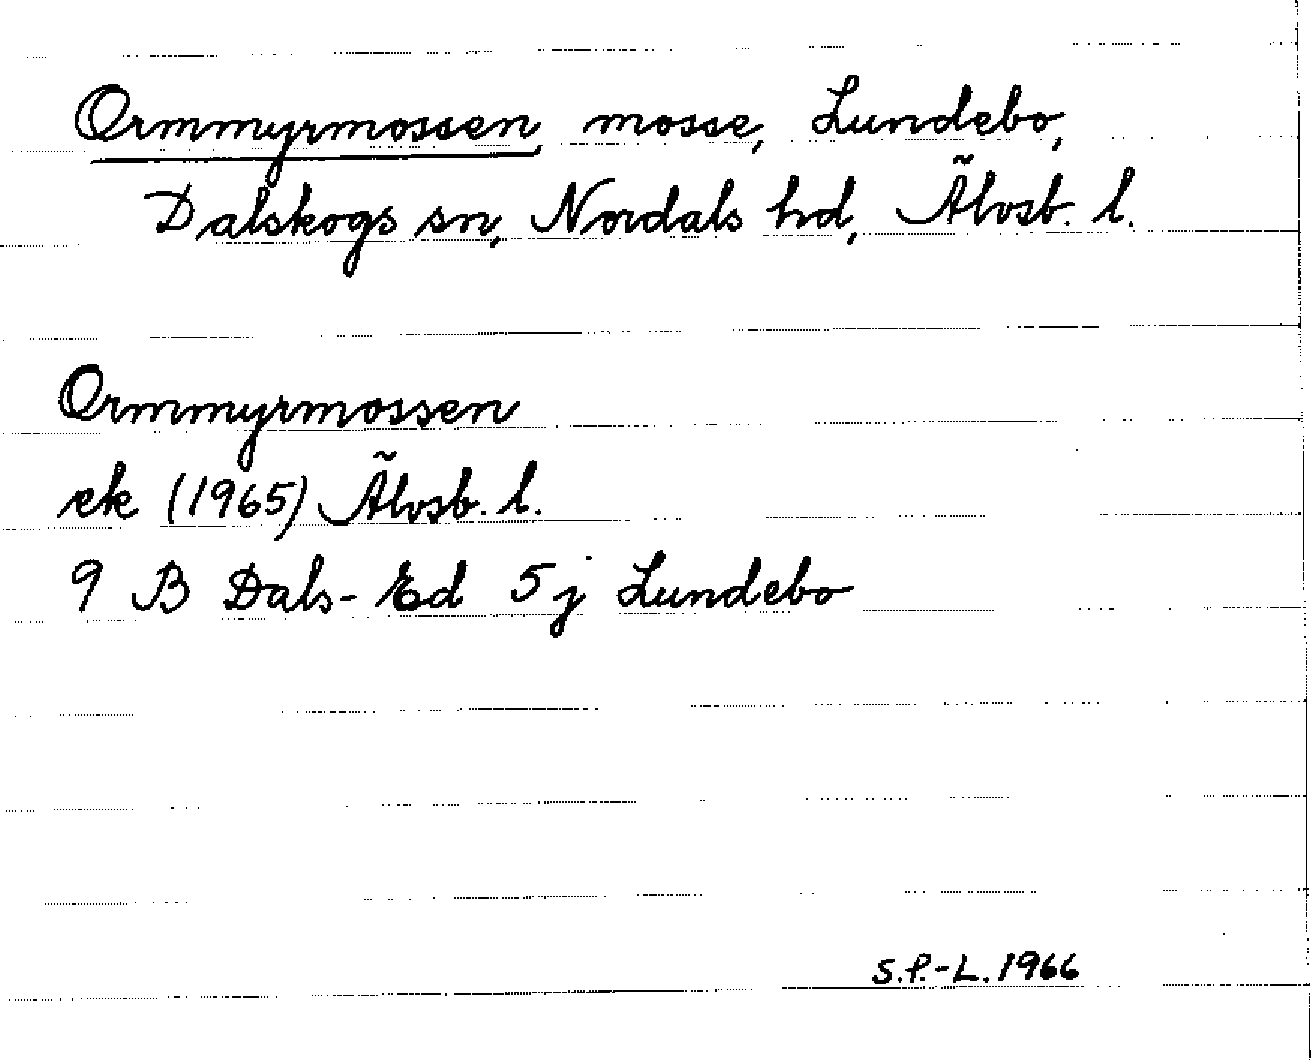 Ormmyrmossen, mosse, Lundebo,
Dalskogs sn, Nordals hd, Älvsb. l.
Ormmyrmossen
ek (1965) Älvsb. l.
9 B Dals-Ed 5 j Lundebo
S.P.-L. 1966